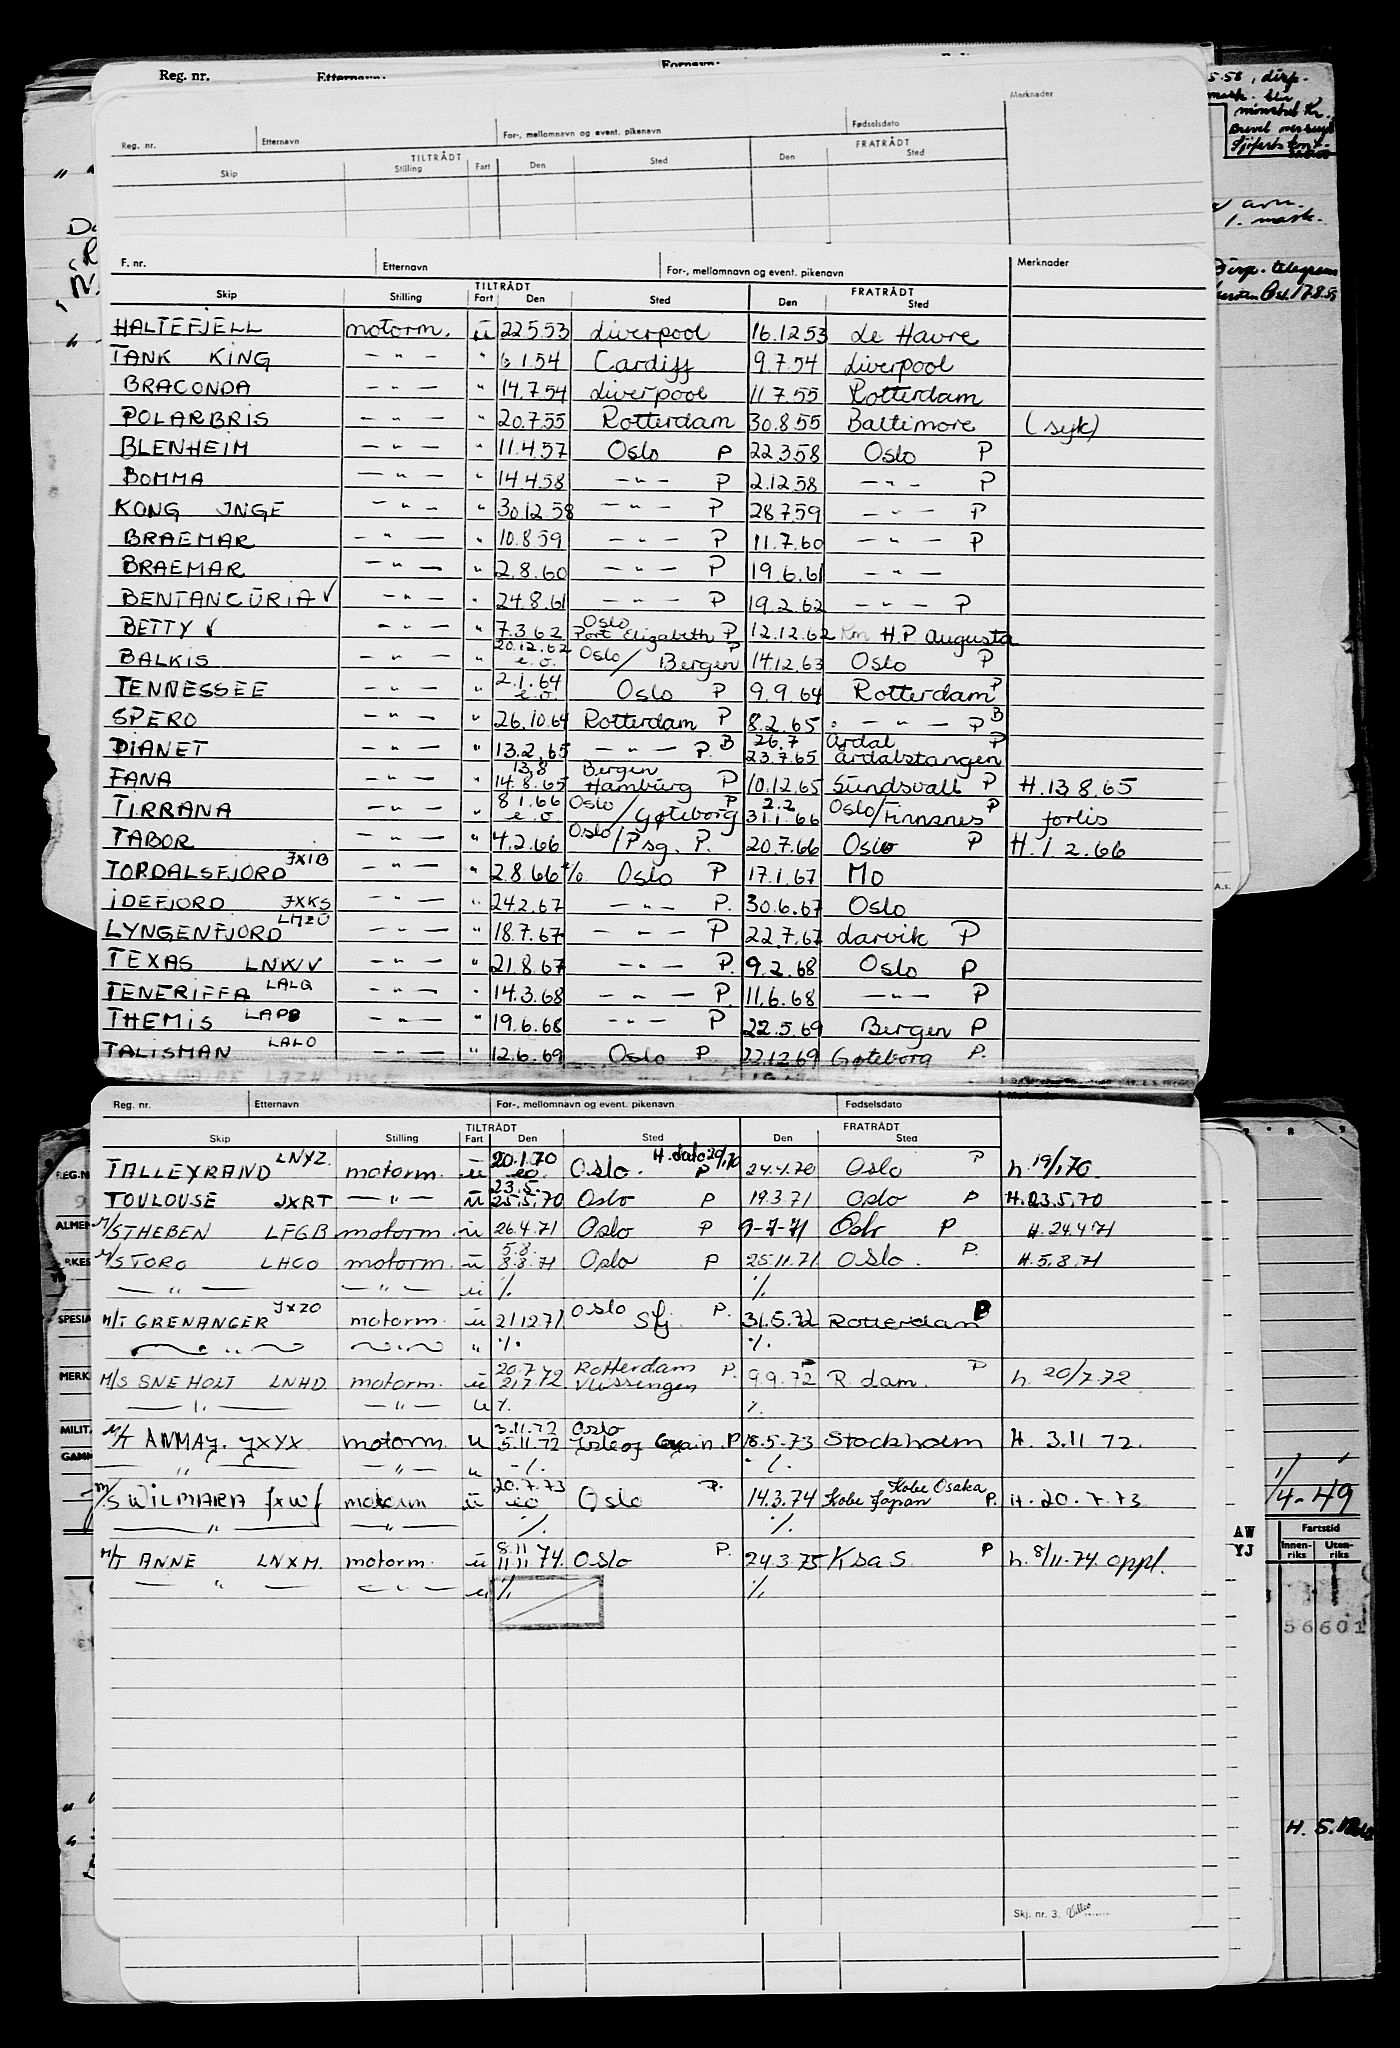 Reg. nr. Etternavn: Fornavn:
Merknader
Reg. nr. Etternavn For-, mellomnavn og event. pikenavn Fødselsdato
TILTRÅDT FRATRÅDT
Skip Stilling Fart Den Sted Den Sted
F. nr. Etternavn For-, mellomnavn og event. pikenavn Merknader
TILTRÅDT FRATRÅDT
Skip Stilling Fart Den Sted Den Sted
HALTEFJELL motorm. ü 22.5.53 Liverpool 16.12.53 Le Havre
TANK KING — " — " 6.1.54 Cardiff 9.7.54 Liverpool
BRACONDA — " — " 14.7.54 Liverpool 11.7.55 Rotterdam
POLARBRIS — " — " 20.7.55 Rotterdam 30.8.55 Baltimore (syk)
BLENHEIM — " — " 11.4.57 Oslo P 22.3.58 Oslo P
BOMMA — " — " 14.4.58 — " — P 2.12.58 — " — P
KONG INGE — " — " 30.12.58 — " — P 28.7.59 — " — P
BRAEMAR — " — " 10.8.59 — " — P 11.7.60 — " — P
BRAEMAR — " — " 2.8.60 — " — P 19.6.61 — " —
BENTANCURIA √ — " — " 24.8.61 — " — P 19.2.62 — " — P
BETTY √ — " — " 7.3.62 Oslo Port Elizabeth P 12.12.62 H.P Augusta
BALKIS — " — " 20.12.62 e.o. Oslo/Bergen P 14.12.63 Oslo P
TENNESSEE — " — " 2.1.64 e.o. Oslo P 9.9.64 Rotterdam P
SPERO — " — " 26.10.64 Rotterdam P 8.2.65 — " — P B
DIANET — " — " 13.2.65 — " — P. B 26.7 23.7.65 Årdal Årdalstangen P
FANA — " — " 13.8 14.8.65 Bergen Hamburg P 10.12.65 Sundsvall P H.13.8.65
TIRRANA — " — " 8.1.66 e.o. Oslo/Gøteborg P 2.2 31.1.66 Oslo/Finnsnes P forlis
TABOR — " — " 4.2.66 Oslo/Psg. P. 20.7.66 Oslo P H.1.2.66
TORDALSFJORD JXIB — " — " 2.8.66 Oslo P 17.1.67 Mo
IDEFJORD JXKS — " — " 24.2.67 — " — P. 30.6.67 Oslo
LYNGENFJORD LMZU — " — " 18.7.67 — " — P 22.7.67 Larvik P
TEXAS LNWV — " — " 21.8.67 — " — P. 9.2.68 Oslo P
TENERIFFA LALQ — " — " 14.3.68 — " — P. 11.6.68 — " — P
THEMIS LAPB — " — " 19.6.68 — " — P 22.5.69 Bergen P
TALISMAN LALO — " — " 12.6.69 Oslo P. 22.12.69 Gøteborg P.
Reg. nr. Etternavn For-, mellomnavn og event. pikenavn Fødselsdato
TILTRÅDT FRATRÅDT
Skip Stilling Fart Den Sted Den Sted
TALLEYRAND LNYZ. motorm. ü 20.1.70 eo. Oslo. H.dato 20/1.70 P 24.4.70 Oslo P h. 19/1.70.
TOULOUSE JXRT — " — ü 23.5. 25.5.70 Oslo P 19.3.71 Oslo P H.23.5.70
M/S THEBEN LFGB motorm. ü 26.4.71 Oslo P 9-7-71 Oslo P H.24.4.71
M/S TORO LHCO motorm. ü 5.8. 8.8.71 Oslo P 25.11.71 Oslo. P. H.5.8.71
— " — — " — ü % %
M/T GRENANGER JXZO motorm. ü 21.12.71 Oslo Sfj. P. 31.5.72 Rotterdam P
— " — — " — " % %
M/S SNEHOLT LNHD motorm. ü 20.7. 21.7.72 Rotterdam Vlissingen P. 9.9.72 R.dam. P h. 20/7.72
— " — — " — ü % %
M/T ANMAJ. JXYX motorm. ü 3.11.72 5.11.72 Oslo Isle of Grain. P 18.5.73 Stockholm H. 3.11 72.
— " — — " — " % %
M/S WILMARA JXWJ motorm ü 20.7.73 eo Oslo P. 14.3.74 Kobe Japan Kobe Osaka P. H. 20.7.73
— " — — " — % %
M/T ANNE LNXM. motorm. ü 8.11 11.11 74. Oslo P. 24.3.75 Ksa S. P h. 8/11-74. oppl.
— " — — " — ü % %
Skj. nr. 3.
1/4-49
AW
YJ
Fartstid
Innenriks Utenriks
56601